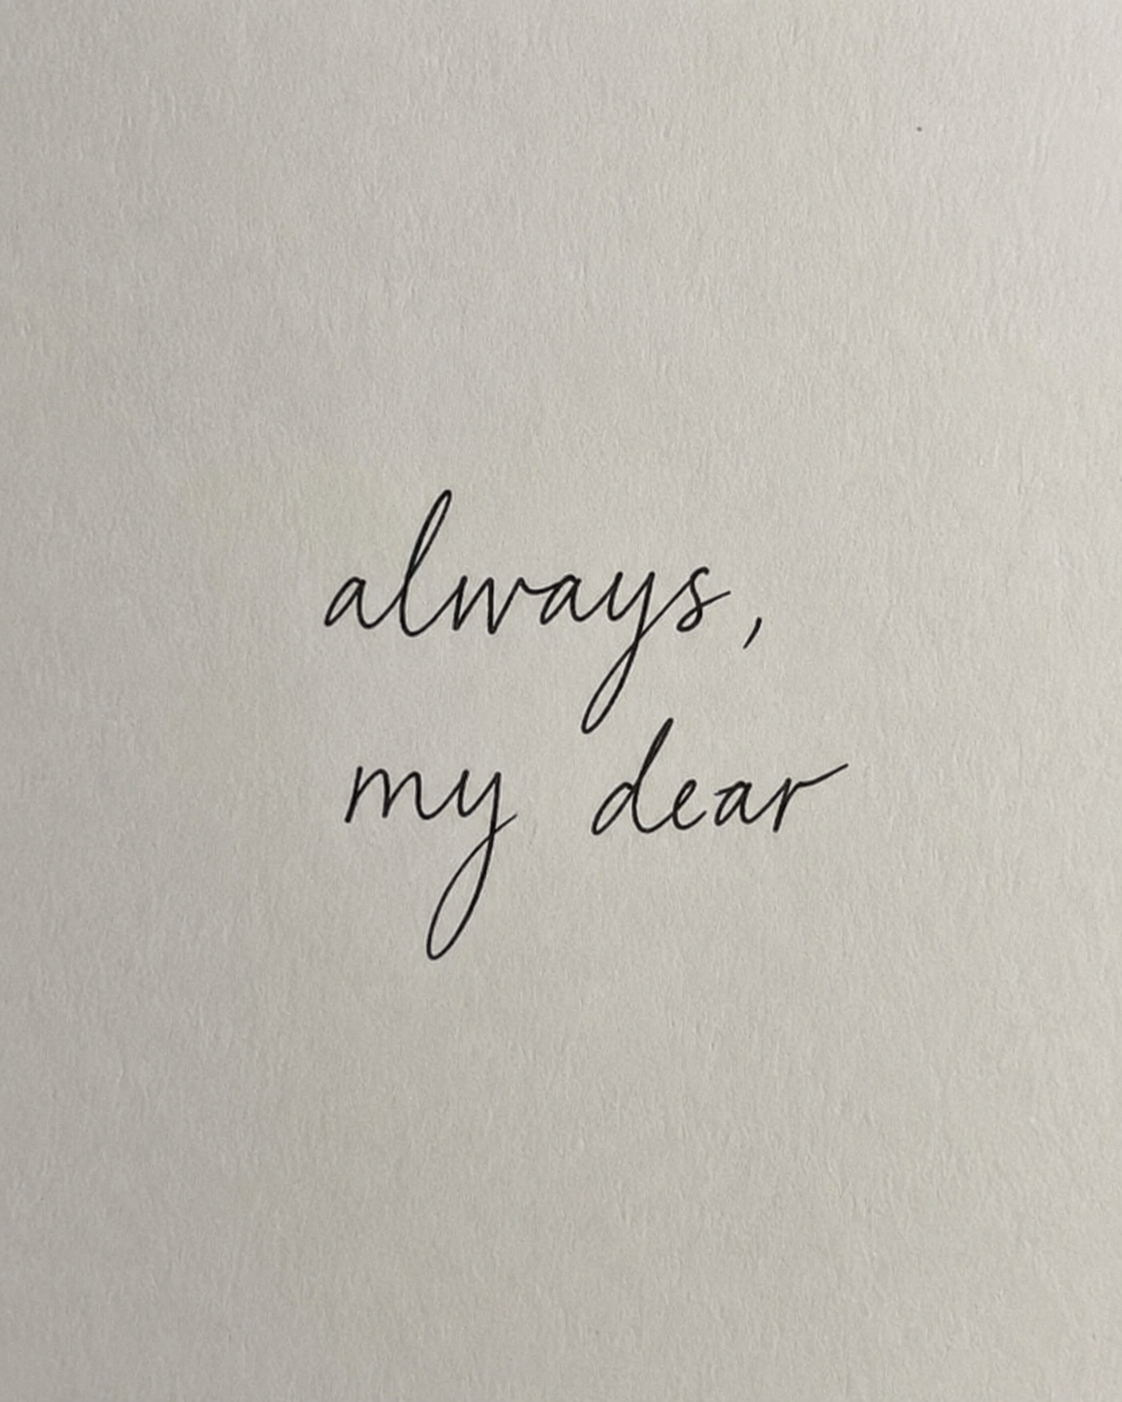 always,
my dear